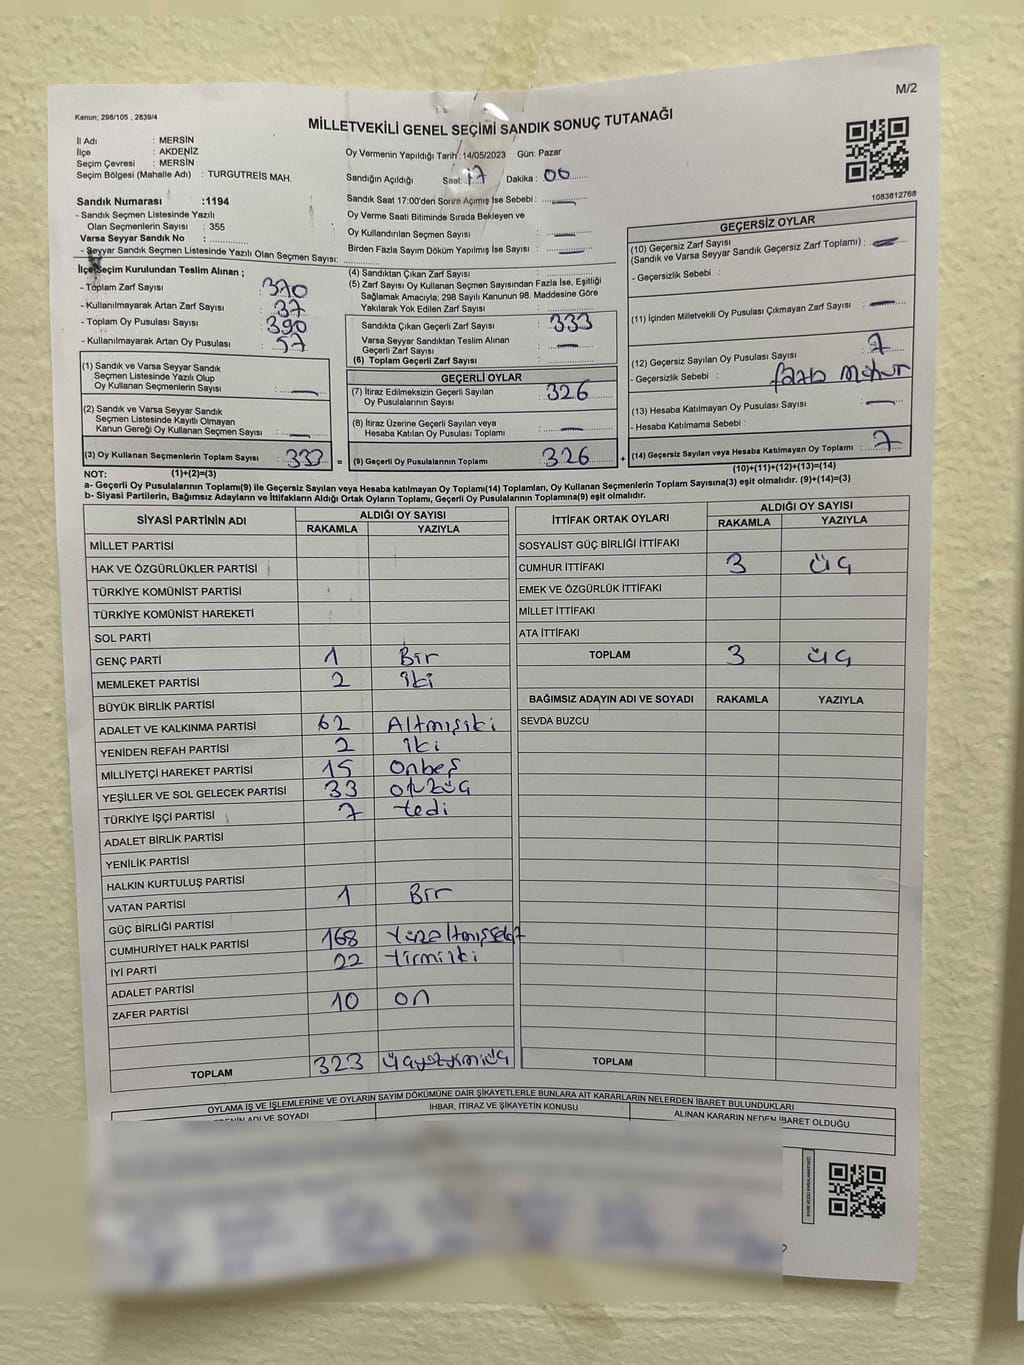 M/2
Kanun; 298/105 , 2839/4
MİLLETVEKİLİ GENEL SEÇİMİ SANDIK SONUÇ TUTANAĞI
İl Adı : MERSİN
İlçe : AKDENİZ
Seçim Çevresi : MERSİN
Seçim Bölgesi (Mahalle Adı) : TURGUTREİS MAH.
Sandık Numarası :1194
- Sandık Seçmen Listesinde Yazılı
Olan Seçmenlerin Sayısı : 355
Varsa Seyyar Sandık No :
- Seyyar Sandık Seçmen Listesinde Yazılı Olan Seçmen Sayısı:
Oy Vermenin Yapıldığı Tarih :14/05/2023 Gün: Pazar
Sandığın Açıldığı Saat: 17 Dakika : 00
Sandık Saat 17:00'den Sonra Açımış İse Sebebi :
Oy Verme Saati Bitiminde Sırada Bekleyen ve
Oy Kullandırılan Seçmen Sayısı :
Birden Fazla Sayım Döküm Yapılmış İse Sayısı :
1083812768
İlçe Seçim Kurulundan Teslim Alınan ;
- Toplam Zarf Sayısı : 370
- Kullanılmayarak Artan Zarf Sayısı : 37
- Toplam Oy Pusulası Sayısı : 390
- Kullanılmayarak Artan Oy Pusulası : 57
(1) Sandık ve Varsa Seyyar Sandık
Seçmen Listesinde Yazılı Olup
Oy Kullanan Seçmenlerin Sayısı :
(2) Sandık ve Varsa Seyyar Sandık
Seçmen Listesinde Kayıtlı Olmayan
Kanun Gereği Oy Kullanan Seçmen Sayısı :
(3) Oy Kullanan Seçmenlerin Toplam Sayısı : 333 =
(4) Sandıktan Çıkan Zarf Sayısı :
(5) Zarf Sayısı Oy Kullanan Seçmen Sayısından Fazla İse, Eşitliği
Sağlamak Amacıyla; 298 Sayılı Kanunun 98. Maddesine Göre
Yakılarak Yok Edilen Zarf Sayısı :
Sandıkta Çıkan Geçerli Zarf Sayısı : 333
Varsa Seyyar Sandıktan Teslim Alınan
Geçerli Zarf Sayısı :
(6) Toplam Geçerli Zarf Sayısı :
GEÇERLİ OYLAR
(7) İtiraz Edilmeksizin Geçerli Sayılan
Oy Pusulalarının Sayısı : 326
(8) İtiraz Üzerine Geçerli Sayılan veya
Hesaba Katılan Oy Pusulası Toplamı :
(9) Geçerli Oy Pusulalarının Toplamı : 326 +
GEÇERSİZ OYLAR
(10) Geçersiz Zarf Sayısı
(Sandık ve Varsa Seyyar Sandık Geçersiz Zarf Toplamı) :
- Geçersizlik Sebebi :
(11) İçinden Milletvekili Oy Pusulası Çıkmayan Zarf Sayısı :
(12) Geçersiz Sayılan Oy Pusulası Sayısı : 7
- Geçersizlik Sebebi : fazla mühür
(13) Hesaba Katılmayan Oy Pusulası Sayısı :
- Hesaba Katılmama Sebebi :
(14) Geçersiz Sayılan veya Hesaba Katılmayan Oy Toplamı : 7
NOT: (1)+(2)=(3)
(10)+(11)+(12)+(13)=(14)
a- Geçerli Oy Pusulalarının Toplamı(9) ile Geçersiz Sayılan veya Hesaba katılmayan Oy Toplamı(14) Toplamları, Oy Kullanan Seçmenlerin Toplam Sayısına(3) eşit olmalıdır. (9)+(14)=(3)
b- Siyasi Partilerin, Bağımsız Adayların ve İttifakların Aldığı Ortak Oyların Toplamı, Geçerli Oy Pusulalarının Toplamına(9) eşit olmalıdır.
SİYASİ PARTİNİN ADI ALDIĞI OY SAYISI
RAKAMLA YAZIYLA
MİLLET PARTİSİ
HAK VE ÖZGÜRLÜKLER PARTİSİ
TÜRKİYE KOMÜNİST PARTİSİ
TÜRKİYE KOMÜNİST HAREKETİ
SOL PARTİ
GENÇ PARTİ 1 Bir
MEMLEKET PARTİSİ 2 iki
BÜYÜK BİRLİK PARTİSİ
ADALET VE KALKINMA PARTİSİ 62 Altmışiki
YENİDEN REFAH PARTİSİ 2 iki
MİLLİYETÇİ HAREKET PARTİSİ 15 onbeş
YEŞİLLER VE SOL GELECEK PARTİSİ 33 otuzüç
TÜRKİYE İŞÇİ PARTİSİ 7 Yedi
ADALET BİRLİK PARTİSİ
YENİLİK PARTİSİ
HALKIN KURTULUŞ PARTİSİ
VATAN PARTİSİ 1 Bir
GÜÇ BİRLİĞİ PARTİSİ
CUMHURİYET HALK PARTİSİ 168 Yüzaltmışsekiz
İYİ PARTİ 22 Yirmiiki
ADALET PARTİSİ
ZAFER PARTİSİ 10 on
TOPLAM 323 üçyüzyirmiüç
İTTİFAK ORTAK OYLARI ALDIĞI OY SAYISI
RAKAMLA YAZIYLA
SOSYALİST GÜÇ BİRLİĞİ İTTİFAKI
CUMHUR İTTİFAKI 3 üç
EMEK VE ÖZGÜRLÜK İTTİFAKI
MİLLET İTTİFAKI
ATA İTTİFAKI
TOPLAM 3 üç
BAĞIMSIZ ADAYIN ADI VE SOYADI RAKAMLA YAZIYLA
SEVDA BUZCU
TOPLAM
OYLAMA İŞ VE İŞLEMLERİNE VE OYLARIN SAYIM DÖKÜMÜNE DAİR ŞİKAYETLERLE BUNLARA AİT KARARLARIN NELERDEN İBARET BULUNDUKLARI
ADI VE SOYADI İHBAR, İTİRAZ VE ŞİKAYETİN KONUSU ALINAN KARARIN NEDEN İBARET OLDUĞU